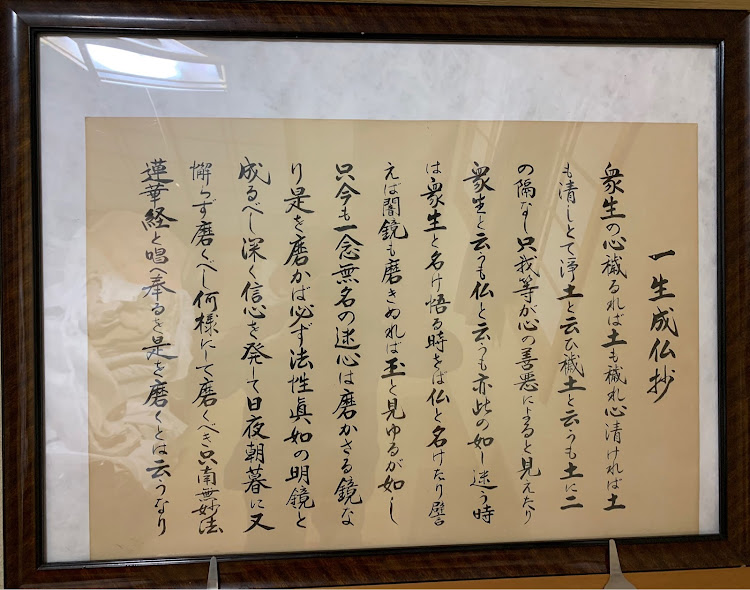 一生成仏抄
衆生の心穢るれば土も穢れ心清ければ土
も清しとて浄土と云ひ穢土と云うも土に二
の隔なし只我等が心の善悪によると見えたり
衆生と云うも仏と云うも亦此の如し迷う時
は衆生と名け悟る時をば仏と名けたり譬
えば闇鏡も磨きぬれば玉と見ゆるが如し
只今も一念無名の迷心は磨かざる鏡な
り是を磨かば必ず法性眞如の明鏡と
成るべし深く信心を発して日夜朝暮に又
懈らず磨くべし何様にして磨くべき只南無妙法
蓮華経と唱へ奉るを是を磨くとは云うなり